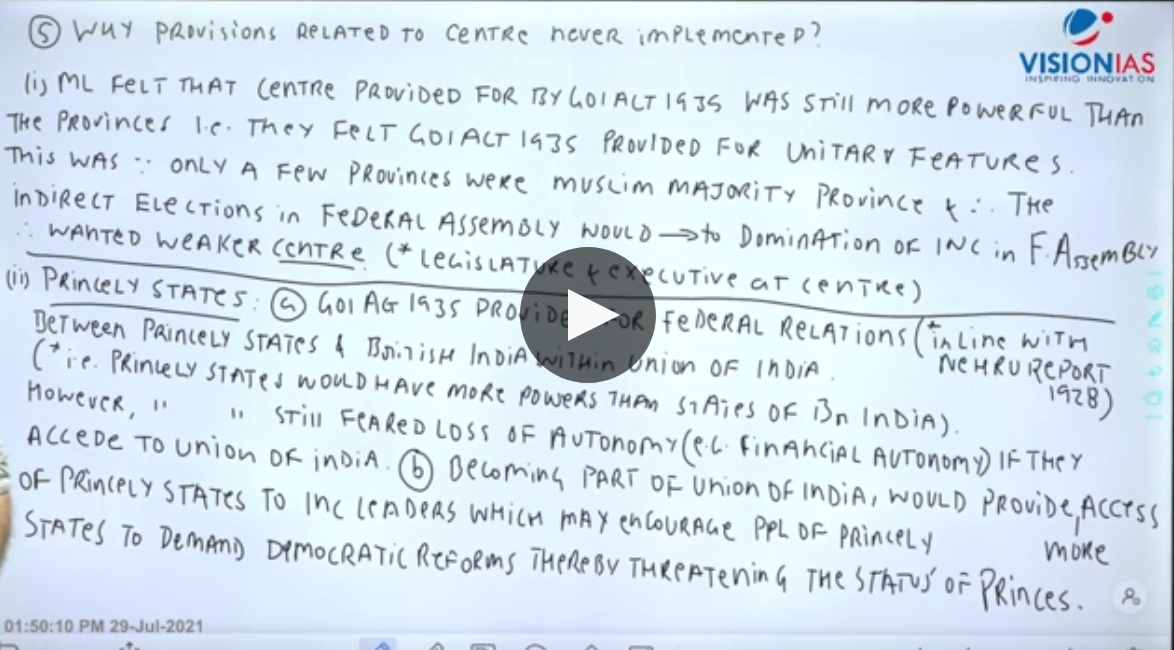 ⑤ WHY PROVISIONS RELATED TO CENTRE NEVER IMPLEMENTED?
VISIONIAS
INSPIRING INNOVATION
(i) ML FELT THAT CENTRE PROVIDED FOR BY GOI ACT 1935 WAS STILL MORE POWERFUL THAN
THE PROVINCES I.e. THEY FELT GOI ACT 1935 PROVIDED FOR UNITARY FEATURES.
THIS WAS ∵ ONLY A FEW PROVINCES WERE MUSLIM MAJORITY PROVINCE & ∴ THE
INDIRECT ELECTIONS in FEDERAL ASSEMBLY WOULD → to DOMINATION OF INC in F. ASSEMBLY
∴ WANTED WEAKER CENTRE (* LEGISLATURE & EXECUTIVE at CENTRE)
(ii) PRINCELY STATES: ⓐ GOI AG 1935 PROVIDE FOR FEDERAL RELATIONS (* in Line WITH
NEHRU REPORT
1928)
BETWEEN PRINCELY STATES & BRITISH INDIA WITHIN UNION OF INDIA.
(* i.e. PRINCELY STATES WOULD HAVE MORE POWERS THAN STATES OF Bn INDIA).
HOWEVER, " " STILL FEARED LOSS OF AUTONOMY (e.g. FINANCIAL AUTONOMY) IF THEY
ACCEDE TO UNION OF INDIA. ⓑ BECOMING PART OF UNION OF INDIA, WOULD PROVIDE, ACCESS
more
OF PRINCELY STATES TO INC LEADERS WHICH MAY ENCOURAGE PPL OF PRINCELY
STATES TO DEMAND DEMOCRATIC REFORMS THEREBY THREATENING THE STATUS OF PRINCES.
01:50:10 PM 29-Jul-2021